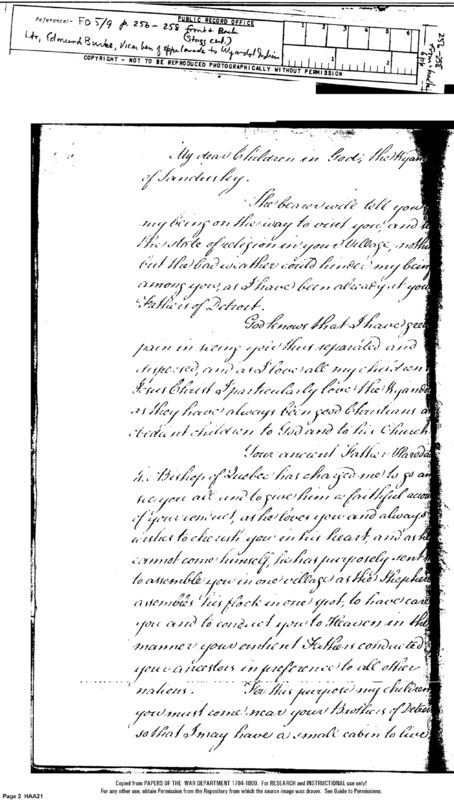 Reference:- FO 5/9 p. 256 - 258 front & back
PUBLIC RECORD OFFICE
Ltr, Edmund Burke, Vicar Gen of Upper Canada to Wyandot Indians
1 2 3 4 5 6
1 2
COPYRIGHT - NOT TO BE REPRODUCED PHOTOGRAPHICALLY WITHOUT PERMISSION
256-258
My dear Children in God, the Wyan
of Sandusky.
The bearer will tell you
my being on the way to visit you, and
the state of religion in your Village, noth
but the bad weather could hinder my bein
among you, as I have been already at you
Fathers of Detroit.
God knows that I have gre
pain in seeing you thus separated and
dispersed, and as I love all my children
Jesus Christ I particularly love the Wyando
as they have always been good Christians a
obedient children to God and to his Church
Your ancient Father
the Bishop of Quebec has charged me to go an
see you all and to give him a faithful accou
of your conduct, as he loves you and always
wishes to cherish you in his heart, and as he
cannot come himself, he has purposely sent
to assemble you in one village as the Shepher
assembles his flock in one spot, to have care
you and to conduct you to Heaven in the
manner your ancient Fathers conducted
your ancestors in preference to all other
nations. For this purpose my children
you must come near your Brothers of Detroi
so that I may have a small cabin to live
Copied from PAPERS OF THE WAR DEPARTMENT 1784-1800. For RESEARCH and INSTRUCTIONAL use only!
For any other use, obtain Permission from the Repository from which the source image was drawn. See Guide to Permissions.
Page 2 HAA21